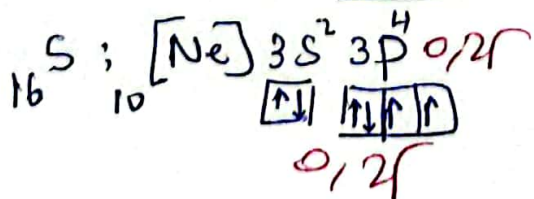 ₁₆S : ₁₀[Ne] 3s² 3p⁴ 0,25
↑↓ ↑↓ ↑ ↑
0,25